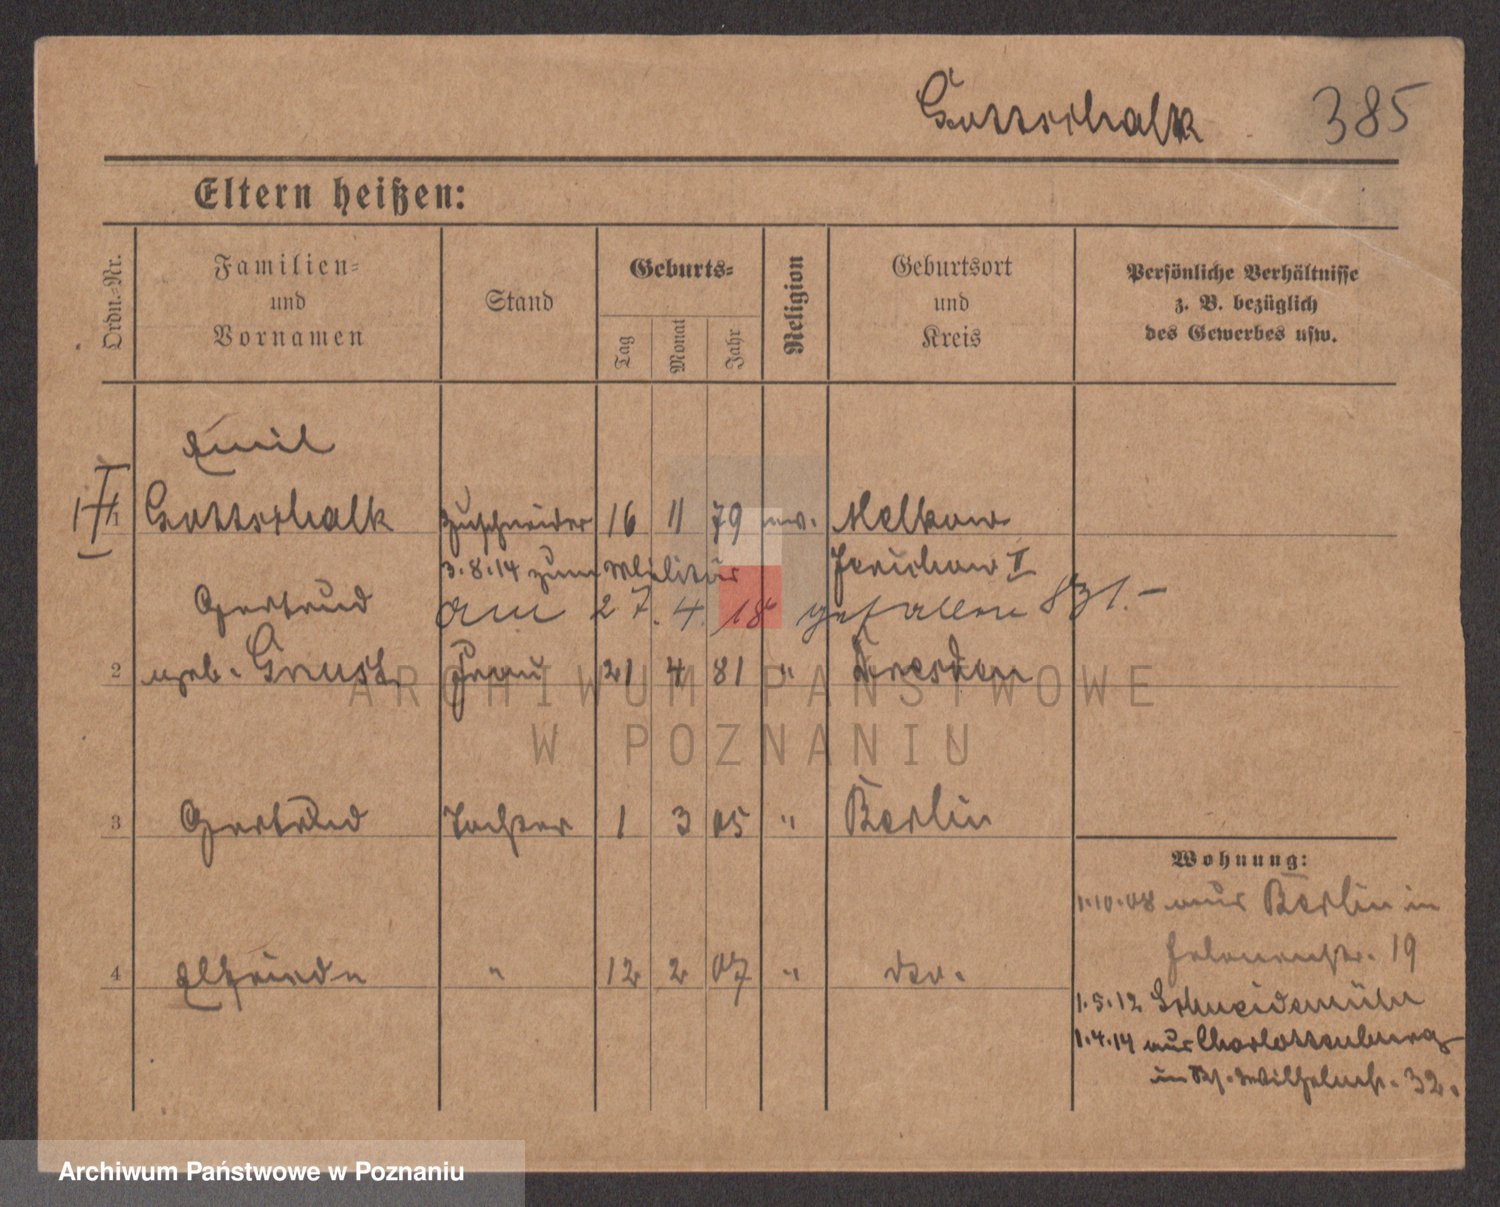 Gottschalk 385
Eltern heißen:
Ordn.-Nr.
Familien-
und
Vornamen
Stand
Geburts-
Tag
Monat
Jahr
Religion
Geburtsort
und
Kreis
Persönliche Verhältnisse
z. B. bezüglich
des Gewerbes usw.
Emil
1 Gottschalk Zuschneider 16 11 79 ev. Melkow
3.8.14 zum Militär Jerichow II
Gertrud am 27.4.18 gefallen 831.-
2 geb. Frau 21 4 81 " Dresden
3 Gertrud Tochter 1 3 05 " Berlin
4 Elfriede " 12 2 07 " do.
Wohnung:
1.10.08 aus Berlin in
19
1.5.12 Schneidemühl
1.4.14 aus Charlottenburg
in Wilhelmstr. 32.
ARCHIWUM PAŃSTWOWE
W POZNANIU
Archiwum Państwowe w Poznaniu